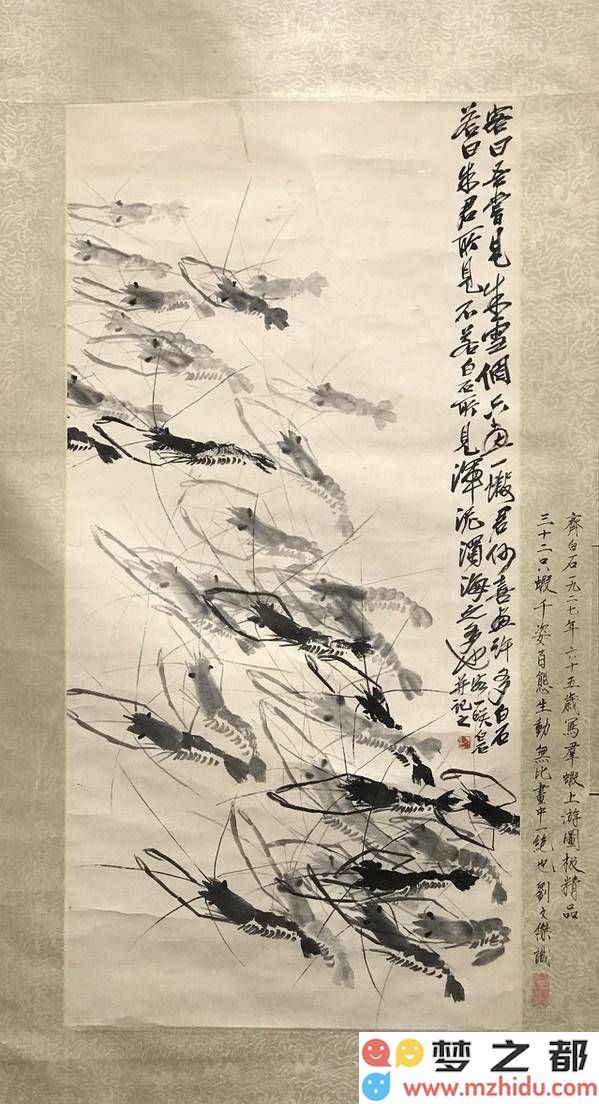 客曰吾嘗見朱雪個只畫一蝦君何喜画許多白石
答曰朱君所見不若白石所見渾泥濁海之多也
客一笑白石
并記之
齊白石一九二七年六十五歲写羣蝦上游圖極精品
三十二只蝦千姿百態生動無比畫中一絕也劉文傑識
梦之都
www.mzhidu.com